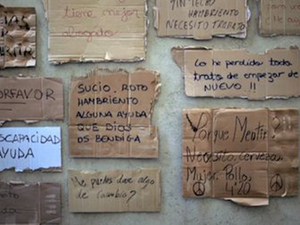 tiene mejor
abogado
SIN TECHO
HAMBRIENTO
NECESITO TRABAJO
Lo he perdido todo
trato de empezar de
NUEVO !!
SUCIO, ROTO
HAMBRIENTO
ALGUNA AYUDA
QUE DIOS
OS BENDIGA
PORFAVOR
DISCAPACIDAD
AYUDA
Me puedes dar algo
de Cambio?
¿Porque Mentir?
Necesito, Cerveza,
Mujer, Pollo,
4:20